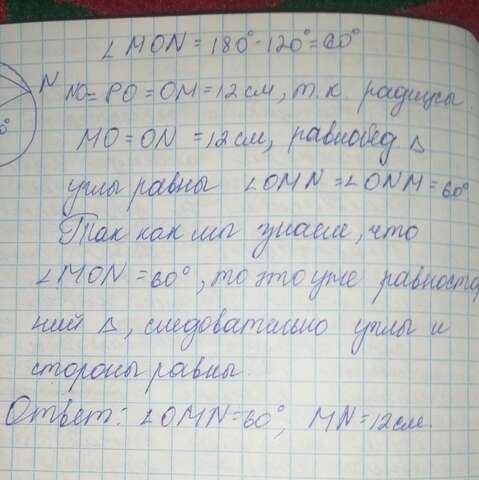 ∠MON = 180° - 120° = 60°
N
NO = PO = OM = 12 см, т.к. радиусы.
MO = ON = 12 см, равнобед △
углы равны ∠OMN = ∠ONM = 60°
Так как мы знаем, что
∠MON = 60°, то это уже равносто
ний △, следовательно углы и
стороны равны.
Ответ: ∠OMN = 60°, MN = 12 см.